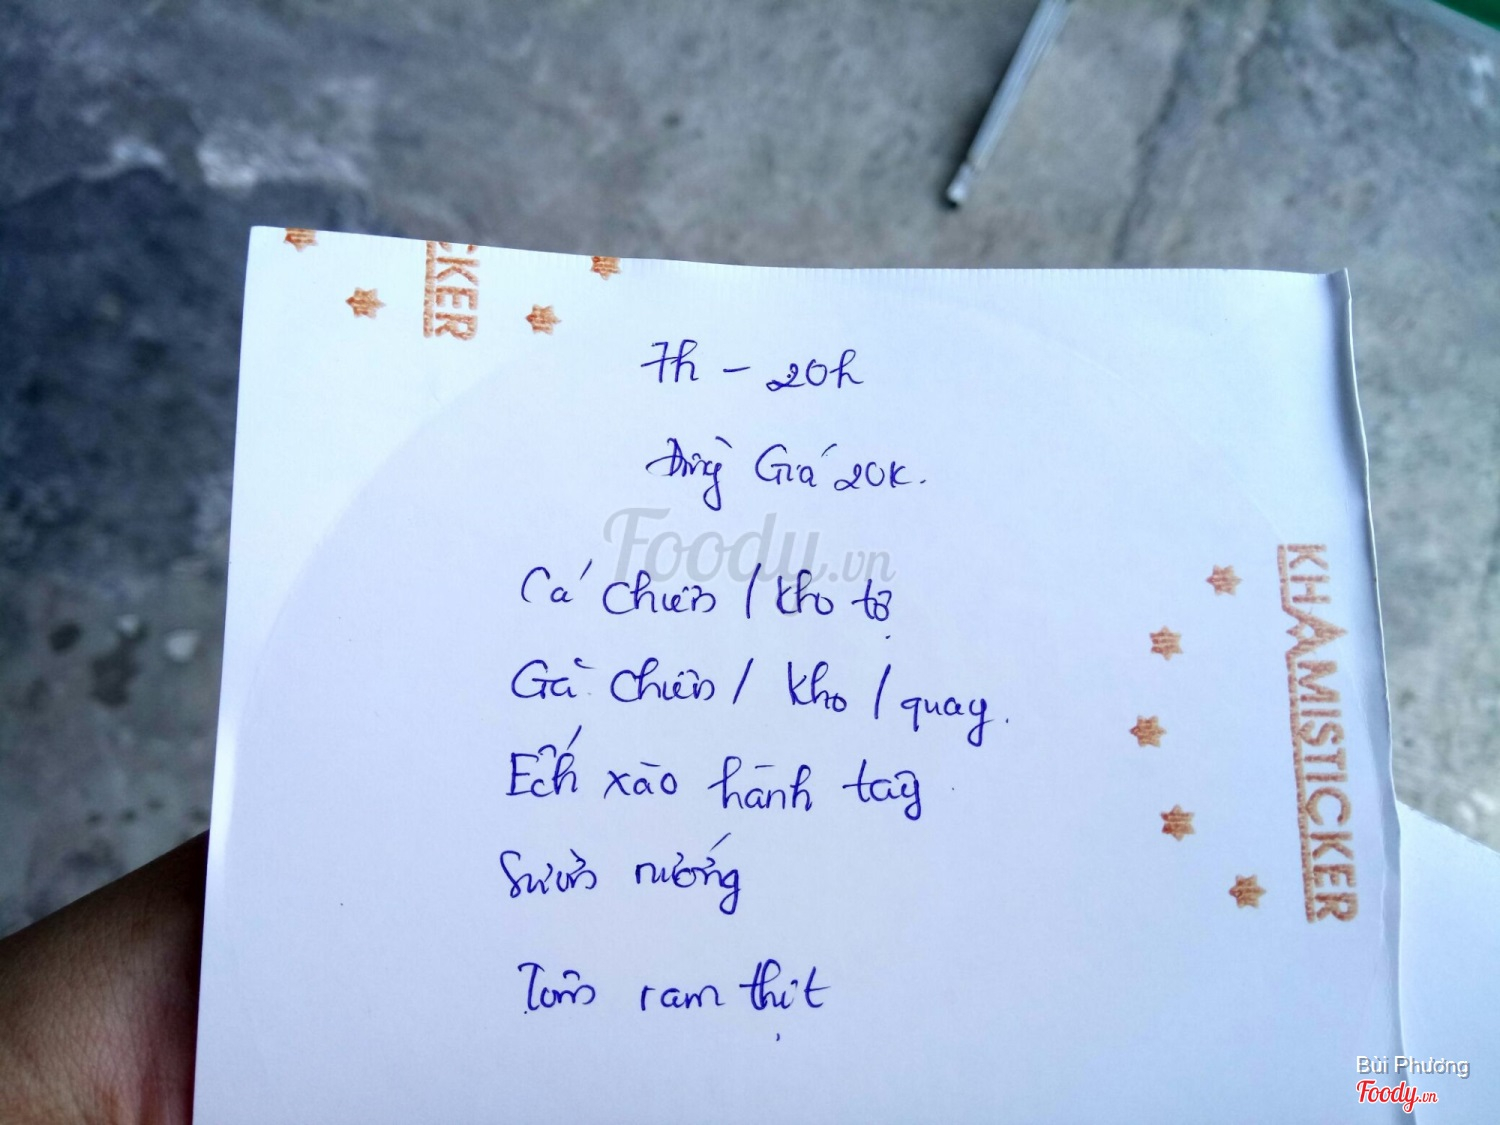 CKER
7h - 20h
Đồng Giá 20K.
Foody.vn
Cá chiên / kho tộ
Gà chiên / kho / quay.
Ếch xào hành tây
Sườn nướng
Tôm ram thịt
KHAMISTICKER
Bùi Phương
Foody.vn